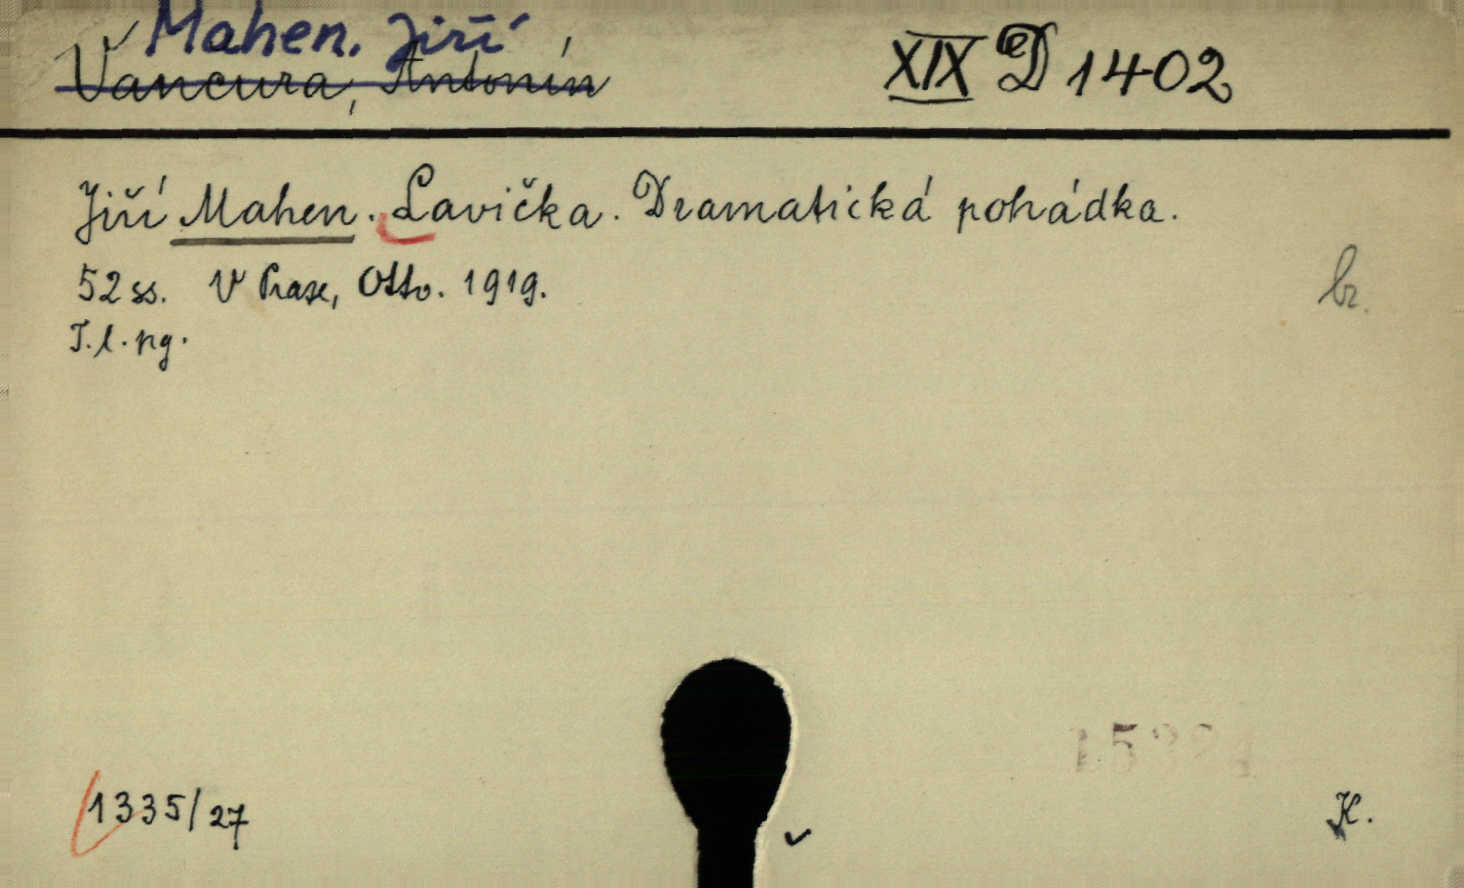 Mahen. Jiří
Vančura, Antonín
XIX D 1402
Jiří Mahen. Lavička. Dramatická pohádka.
52 ss. V Praze, Otto. 1919.
br.
T. l. ng.
1335/27
K.